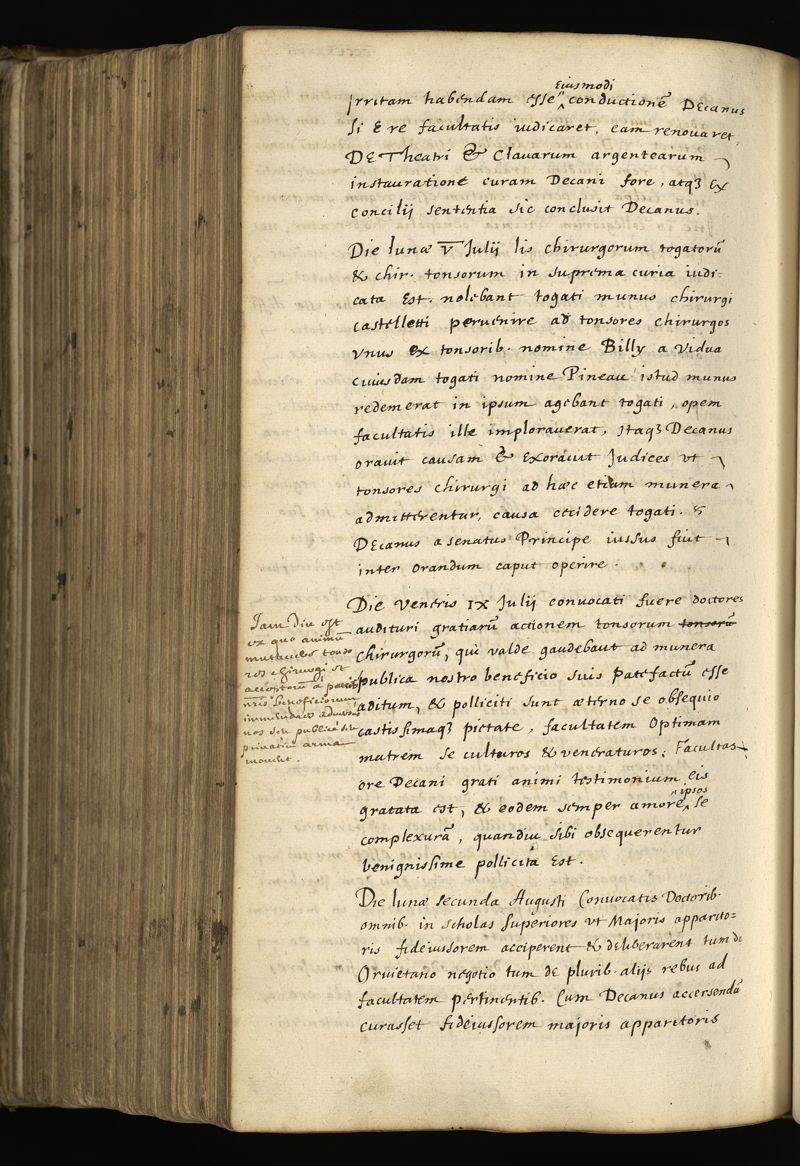 irritam habendam esse eiusmodi conductionē Decanus
si e re facultatis iudicaret, eam renovaret
De Theatri & Clavarum argentearum
instauratione curam Decani fore, atqꝫ ex
concilij sententia sic conclusit Decanus.
Die lunæ V Julij lis chirurgorum togatorū
& chir. tonsorum in suprema curia iudi-
cata est. nolebant togati munus chirurgi
castelletti pervenire ad tonsores chirurgos
vnus ex tonsorib. nomine Billy a vidua
cuiusdam togati nomine Pineau istud munus
redemerat in ipsum agebant togati, opem
facultatis ille imploraverat, Itaqꝫ Decanus
oravit causam & exoravit Judices vt
tonsores chirurgi ad hæc etiam munera
admitterentur, causa cecidere togati. &
Decanus a senatus Principe iussus fuit
inter orandum caput operire.
Die Veneris IX Julij convocati fuere doctores
audituri gratiarū actionem tonsorum tonsorū
chirurgorū, qui valde gaudebant ad munera
publica nostro beneficio suis patefactū esse
aditum, & polliciti sunt æterno se obsequio
castissimaqꝫ pietate, facultatem optimam
matrem se culturos & veneraturos; Facultas
ore Decani grati animi testimonium eis
gratata est, & eodem semper amore ipsos se
complexurā, quandiu sibi obsequerentur
benignissime pollicita est.
Iam diu est
ex quo animū
mutavere tonso
res chirurgi et
acceptorū a patrib.
nris beneficiorum
immemores adversus
nos seu publice seu
privatim arma
movent.
Die lunæ secunda Augusti Convocatis Doctorib.
omnib. in scholas superiores vt Majoris apparito-
ris fideiussorem acciperent & deliberarent tum de
Orvietano negotio tum de plurib. alijs rebus ad
facultatem pertinentib. Cum Decanus accersendū
curasset fideiussorem majoris apparitoris